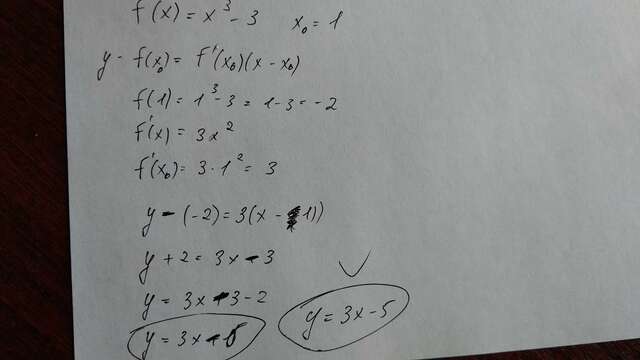 f(x) = x³ - 3 x₀ = 1
y - f(x₀) = f'(x₀)(x - x₀)
f(1) = 1³ - 3 = 1 - 3 = -2
f'(x) = 3x²
f'(x₀) = 3 · 1² = 3
y - (-2) = 3(x - 1))
y + 2 = 3x - 3
y = 3x - 3 - 2
y = 3x - 5
y = 3x - 5